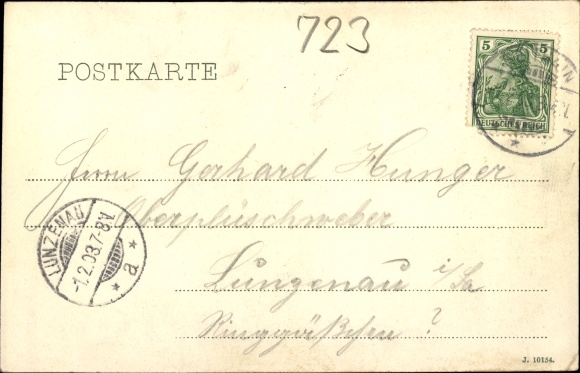 723
POSTKARTE
5 5
DEUTSCHES REICH
Herrn Gerhard Hunger
Oberplüschweber
LUNZENAU
-1.2.03.7-8V.
* a *
Lunzenau i/Sa
Ringgäßchen ?
J. 10154.